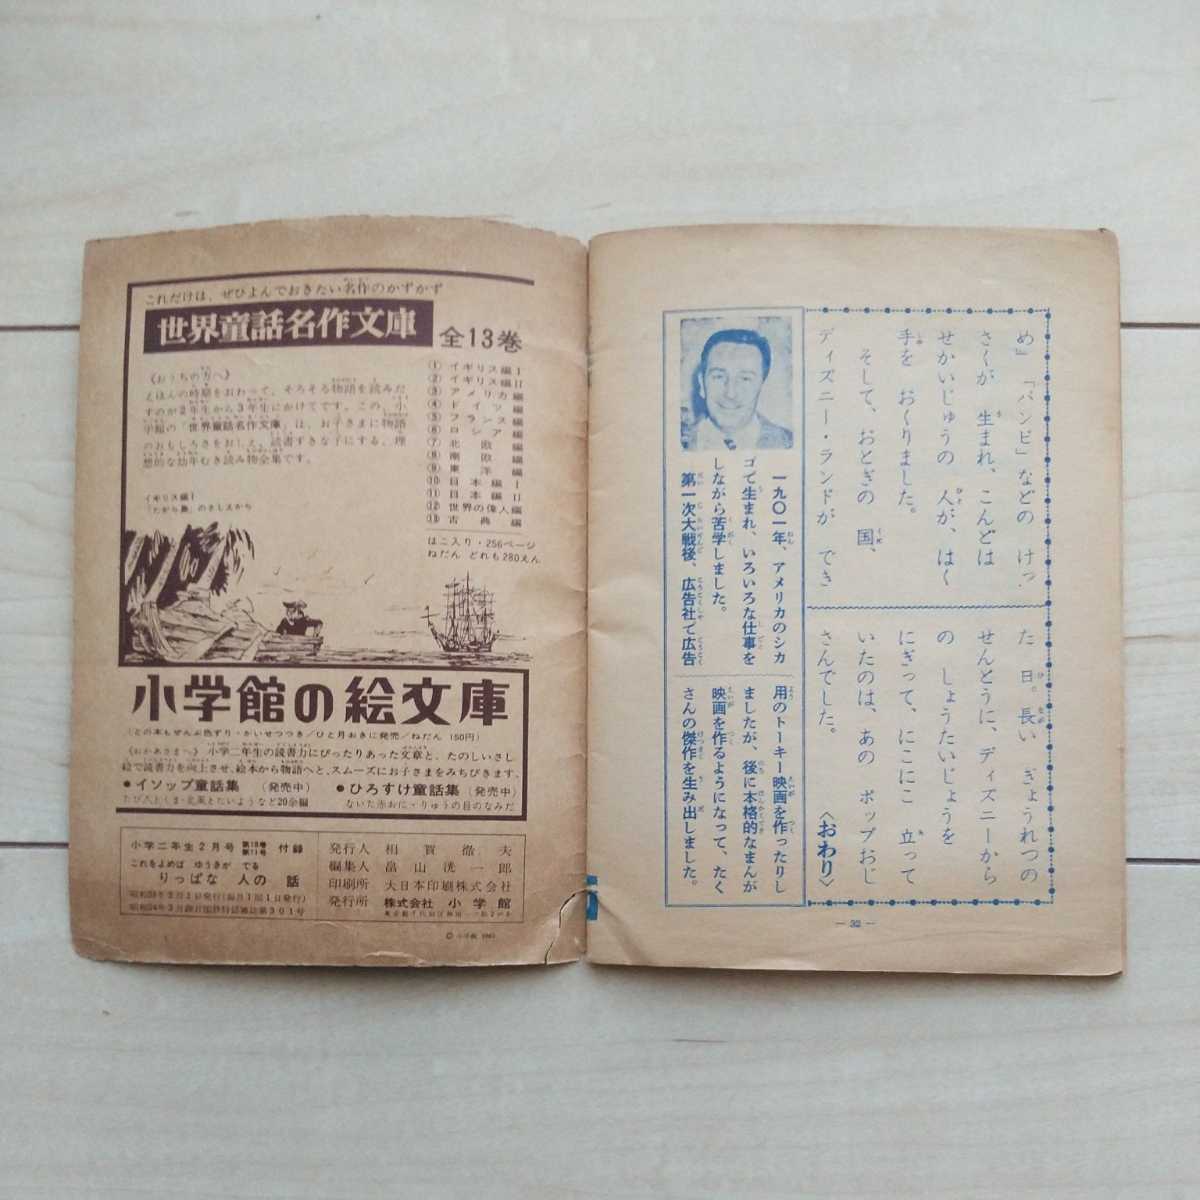 め』 『バンビ』などの けっ
さくが 生まれ、こんどは
せかいじゅうの 人が、はく
手を おくりました。
そして、おとぎの 国、
ディズニー・ランドが でき
た 日。長い ぎょうれつの
せんとうに、ディズニーから
の しょうたいじょうを
にぎって、にこにこ 立って
いたのは、あの ポップおじ
さんでした。 〈おわり〉
一九〇一年、アメリカのシカ
ゴで生まれ、いろいろな仕事を
しながら苦学しました。
第一次大戦後、広告社で広告
用のトーキー映画を作ったりし
ましたが、後に本格的なまんが
映画を作るようになって、たく
さんの傑作を生み出しました。
― 32 ―
これだけは、ぜひよんでおきたい名作のかずかず
世界童話名作文庫
全13巻
《おうちの方へ》
えほんの時期をおわって、そろそろ物語を読みだ
すのが2年生から3年生にかけてです。この、小
学館の「世界童話名作文庫」は、お子さまに物語
のおもしろさをおしえ、読書ずきな子にする、理
想的な幼年むき読み物全集です。
イギリス編Ⅰ
「たから島」のさしえから
① イギリス編Ⅰ
② イギリス編Ⅱ
③ アメリカ編
④ ドイツ編
⑤ フランス編
⑥ ロシア編
⑦ 北欧編
⑧ 南欧編
⑨ 東洋編
⑩ 日本編Ⅰ
⑪ 日本編Ⅱ
⑫ 世界の偉人編
⑬ 古典編
はこ入り・256ページ
ねだん どれも280えん
小学館の絵文庫
(どの本もぜんぶ色ずり・かいせつつき/ひと月おきに発売/ねだん 150円)
《おかあさまへ》 小学二年生の読書力にぴったりあった文章と、たのしいさし
絵で読書力を向上させ、絵本から物語へと、スムーズにお子さまをみちびきます。
●イソップ童話集 (発売中)
たび人とくま・北風とたいようなど20余編
●ひろすけ童話集 (発売中)
ないた赤おに・りゅうの目のなみだ
小学二年生2月号 第18巻 第11号 付録
これをよめば ゆうきが でる
りっぱな 人の 話
発行人 相賀徹夫
編集人 畠山滉一郎
印刷所 大日本印刷株式会社
発行所 株式会社 小学館
© 小学館